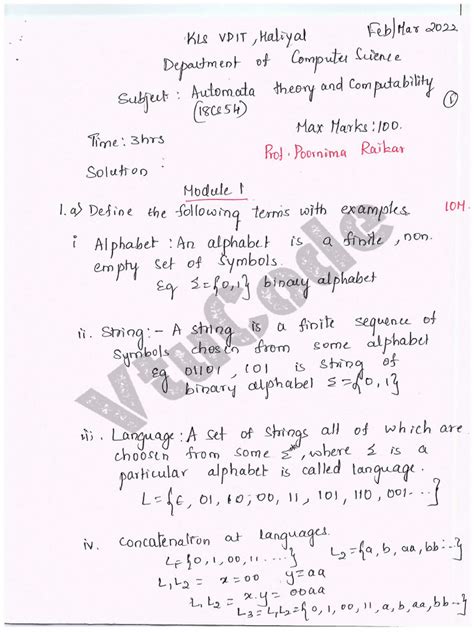 Feb/Mar 2022
KLS VDIT, Haliyal
Department of Computer Science
Subject : Automata theory and Computability
(18CS54)
1
Max Marks:100.
Time: 3hrs
Prof. Poornima Raikar
Solution :
Module 1
1.a) Define the following terms with examples 10M.
i Alphabet : An alphabet is a finite, non.
empty set of symbols.
Eg Σ={0,1} binary alphabet
ii. String:- A string is a finite sequence of
symbols chosen from some alphabet
Eg 01101, 101 is string of
binary alphabet Σ={0,1}
iii. Language : A set of strings all of which are
choosen from some Σ*, where Σ is a
particular alphabet is called language.
L={ϵ, 01, 10, 00, 11, 101, 110, 001...}
iv. Concatenation at languages.
L1={0,1,00,11....} L2={a,b,aa,bb...}
L1L2 = x=00 y=aa
L1L2 = x.y = 00aa
L3=L1L2={0,1,00,11,a,b,aa,bb--}
VtuCode